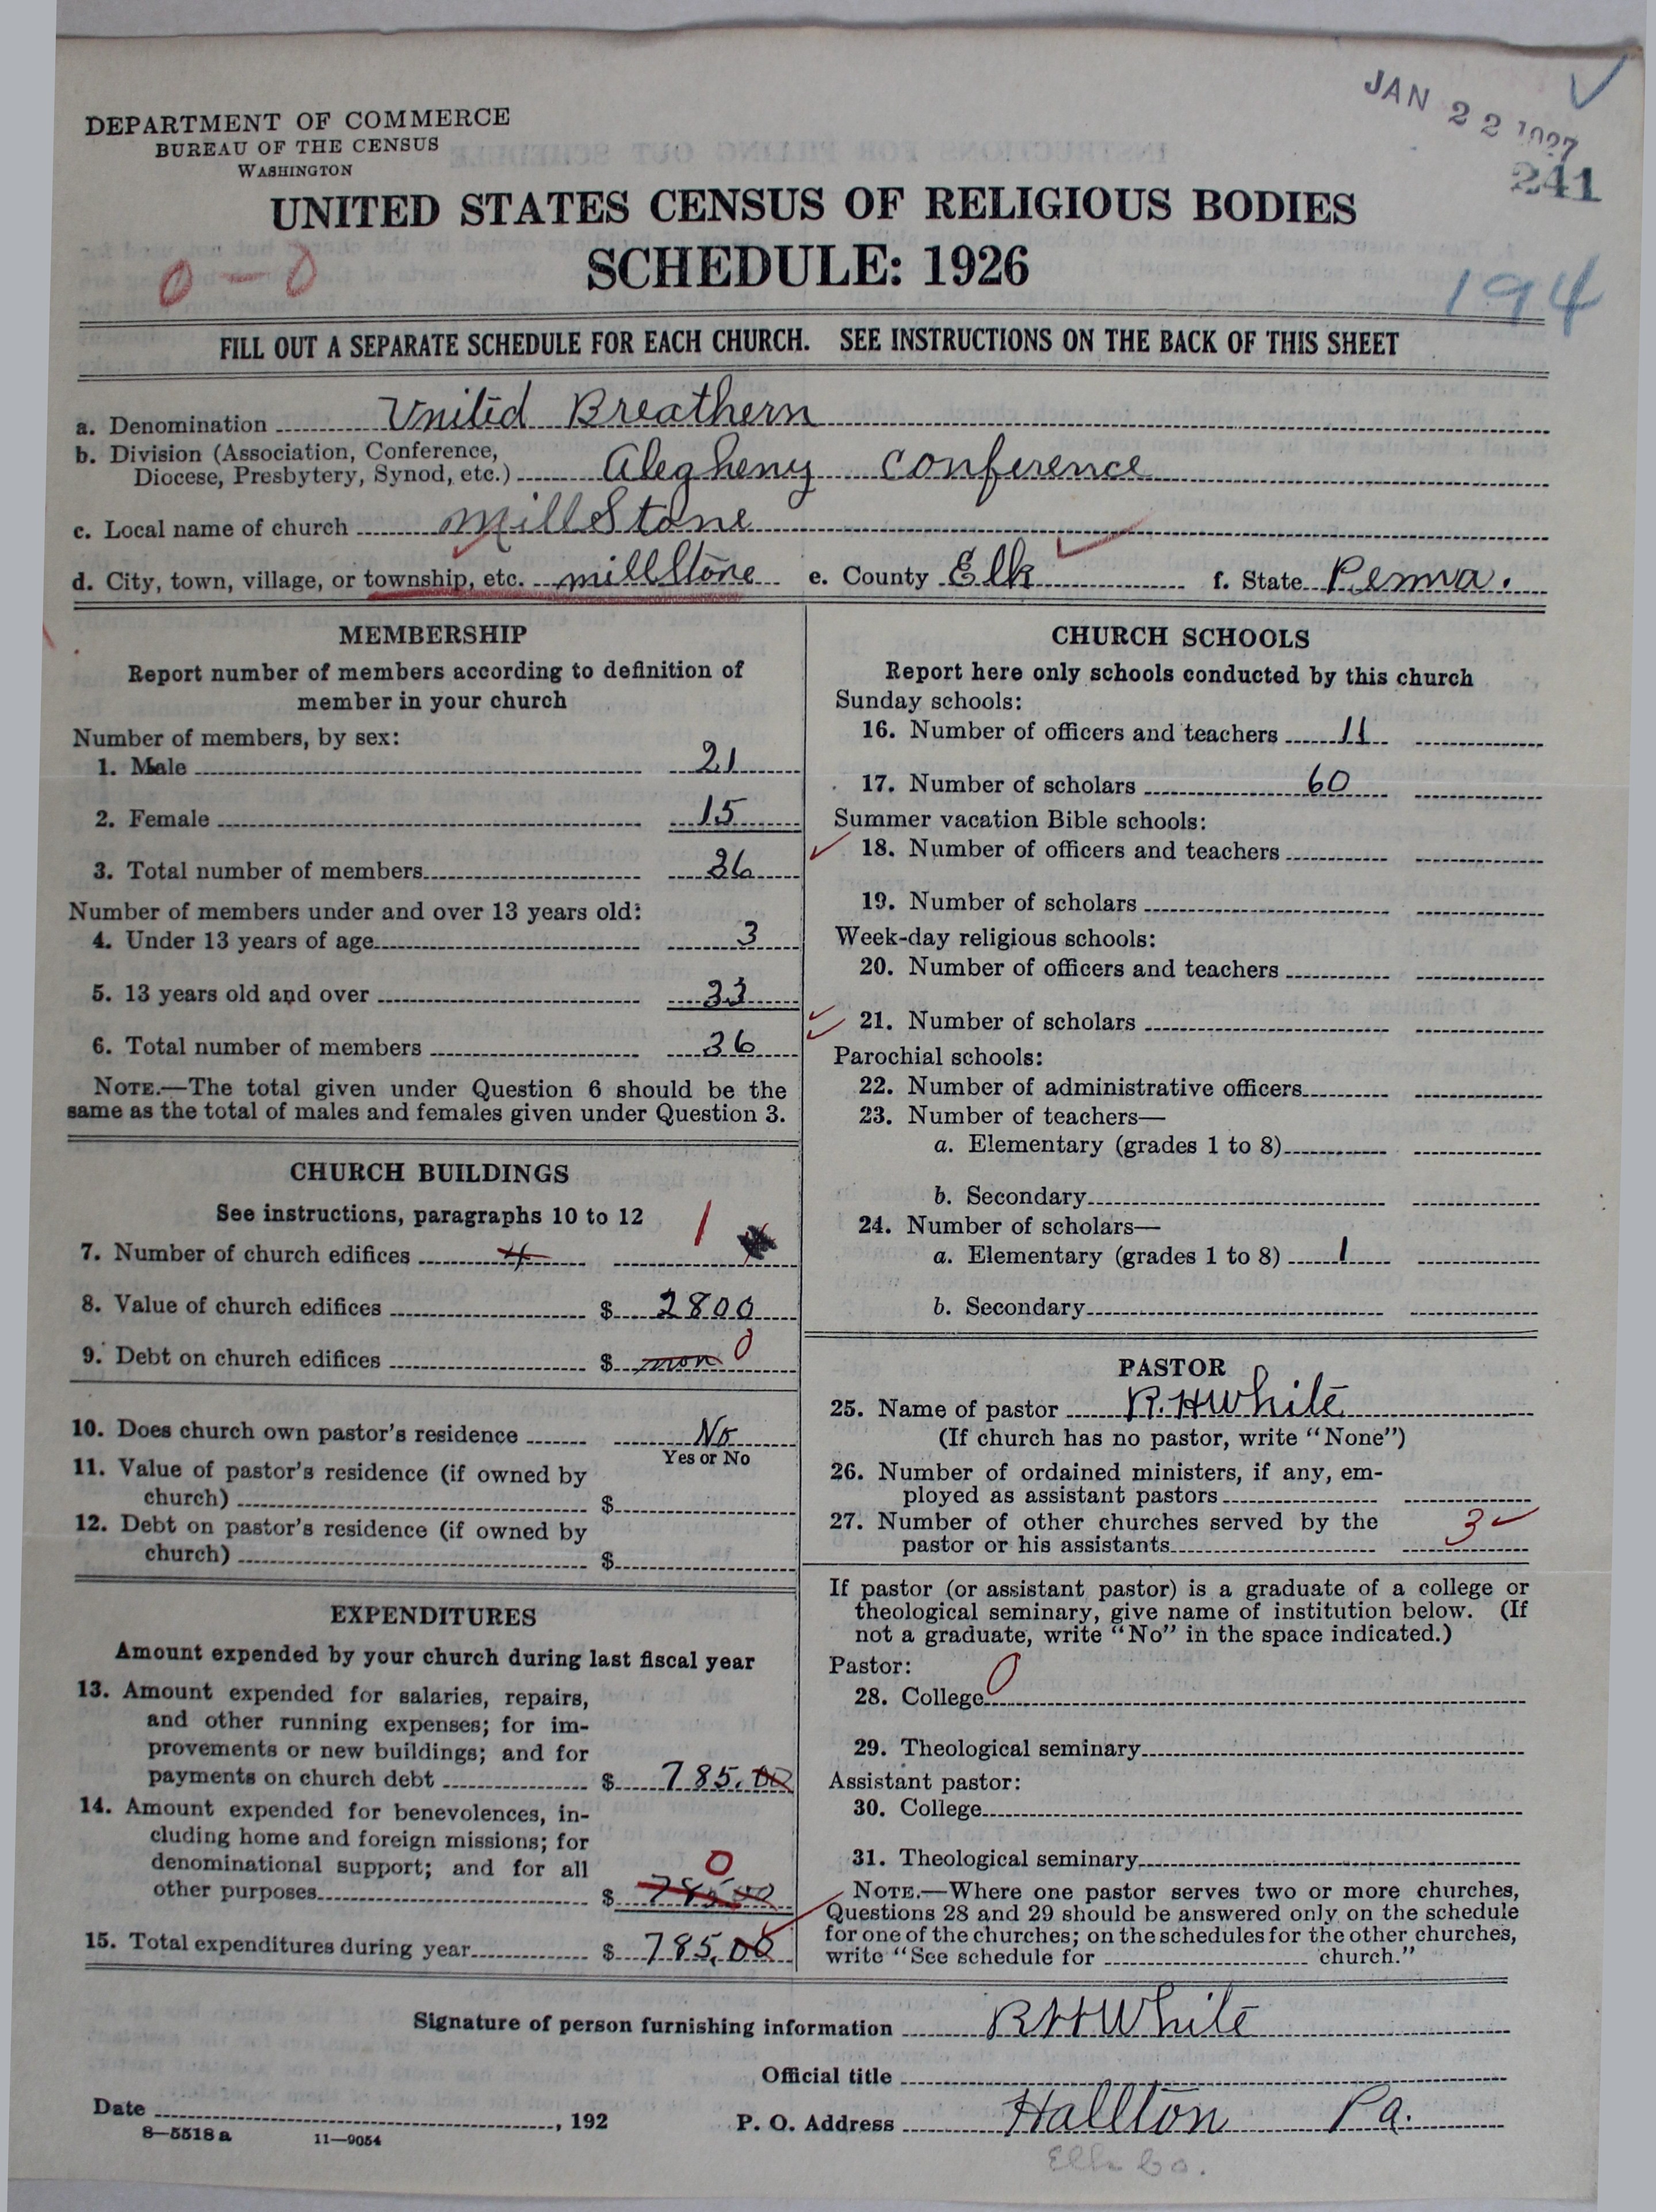 JAN 22 1927
241
DEPARTMENT OF COMMERCE
BUREAU OF THE CENSUS
WASHINGTON
UNITED STATES CENSUS OF RELIGIOUS BODIES
SCHEDULE: 1926
0 - 0
194
FILL OUT A SEPARATE SCHEDULE FOR EACH CHURCH. SEE INSTRUCTIONS ON THE BACK OF THIS SHEET
a. Denomination United Breathern
b. Division (Association, Conference,
Diocese, Presbytery, Synod, etc.) Alegheny Conference
c. Local name of church MillStone
d. City, town, village, or township, etc. millStone e. County Elk f. State Penna.
MEMBERSHIP
Report number of members according to definition of
member in your church
Number of members, by sex:
1. Male 21
2. Female 15
3. Total number of members 36
Number of members under and over 13 years old:
4. Under 13 years of age 3
5. 13 years old and over 33
6. Total number of members 36
NOTE.—The total given under Question 6 should be the
same as the total of males and females given under Question 3.
CHURCH BUILDINGS
See instructions, paragraphs 10 to 12
1
7. Number of church edifices 4
8. Value of church edifices $ 2800
9. Debt on church edifices $ non 0
10. Does church own pastor's residence No
Yes or No
11. Value of pastor's residence (if owned by
church) $
12. Debt on pastor's residence (if owned by
church) $
EXPENDITURES
Amount expended by your church during last fiscal year
13. Amount expended for salaries, repairs,
and other running expenses; for im-
provements or new buildings; and for
payments on church debt $ 785.00
14. Amount expended for benevolences, in-
cluding home and foreign missions; for
denominational support; and for all
0
other purposes $ 785 00
15. Total expenditures during year $ 785.00
CHURCH SCHOOLS
Report here only schools conducted by this church
Sunday schools:
16. Number of officers and teachers 11
17. Number of scholars 60
Summer vacation Bible schools:
18. Number of officers and teachers
19. Number of scholars
Week-day religious schools:
20. Number of officers and teachers
21. Number of scholars
Parochial schools:
22. Number of administrative officers
23. Number of teachers—
a. Elementary (grades 1 to 8)
b. Secondary
24. Number of scholars—
a. Elementary (grades 1 to 8) 1
b. Secondary
PASTOR
25. Name of pastor R. H White
(If church has no pastor, write "None")
26. Number of ordained ministers, if any, em-
ployed as assistant pastors
27. Number of other churches served by the
pastor or his assistants 3
If pastor (or assistant pastor) is a graduate of a college or
theological seminary, give name of institution below. (If
not a graduate, write "No" in the space indicated.)
Pastor:
28. College 0
29. Theological seminary
Assistant pastor:
30. College
31. Theological seminary
NOTE.—Where one pastor serves two or more churches,
Questions 28 and 29 should be answered only on the schedule
for one of the churches; on the schedules for the other churches,
write "See schedule for church."
Signature of person furnishing information R H White
Official title
Date , 192 P. O. Address Hallton Pa.
8—5518 a 11—9054
Elk Co.